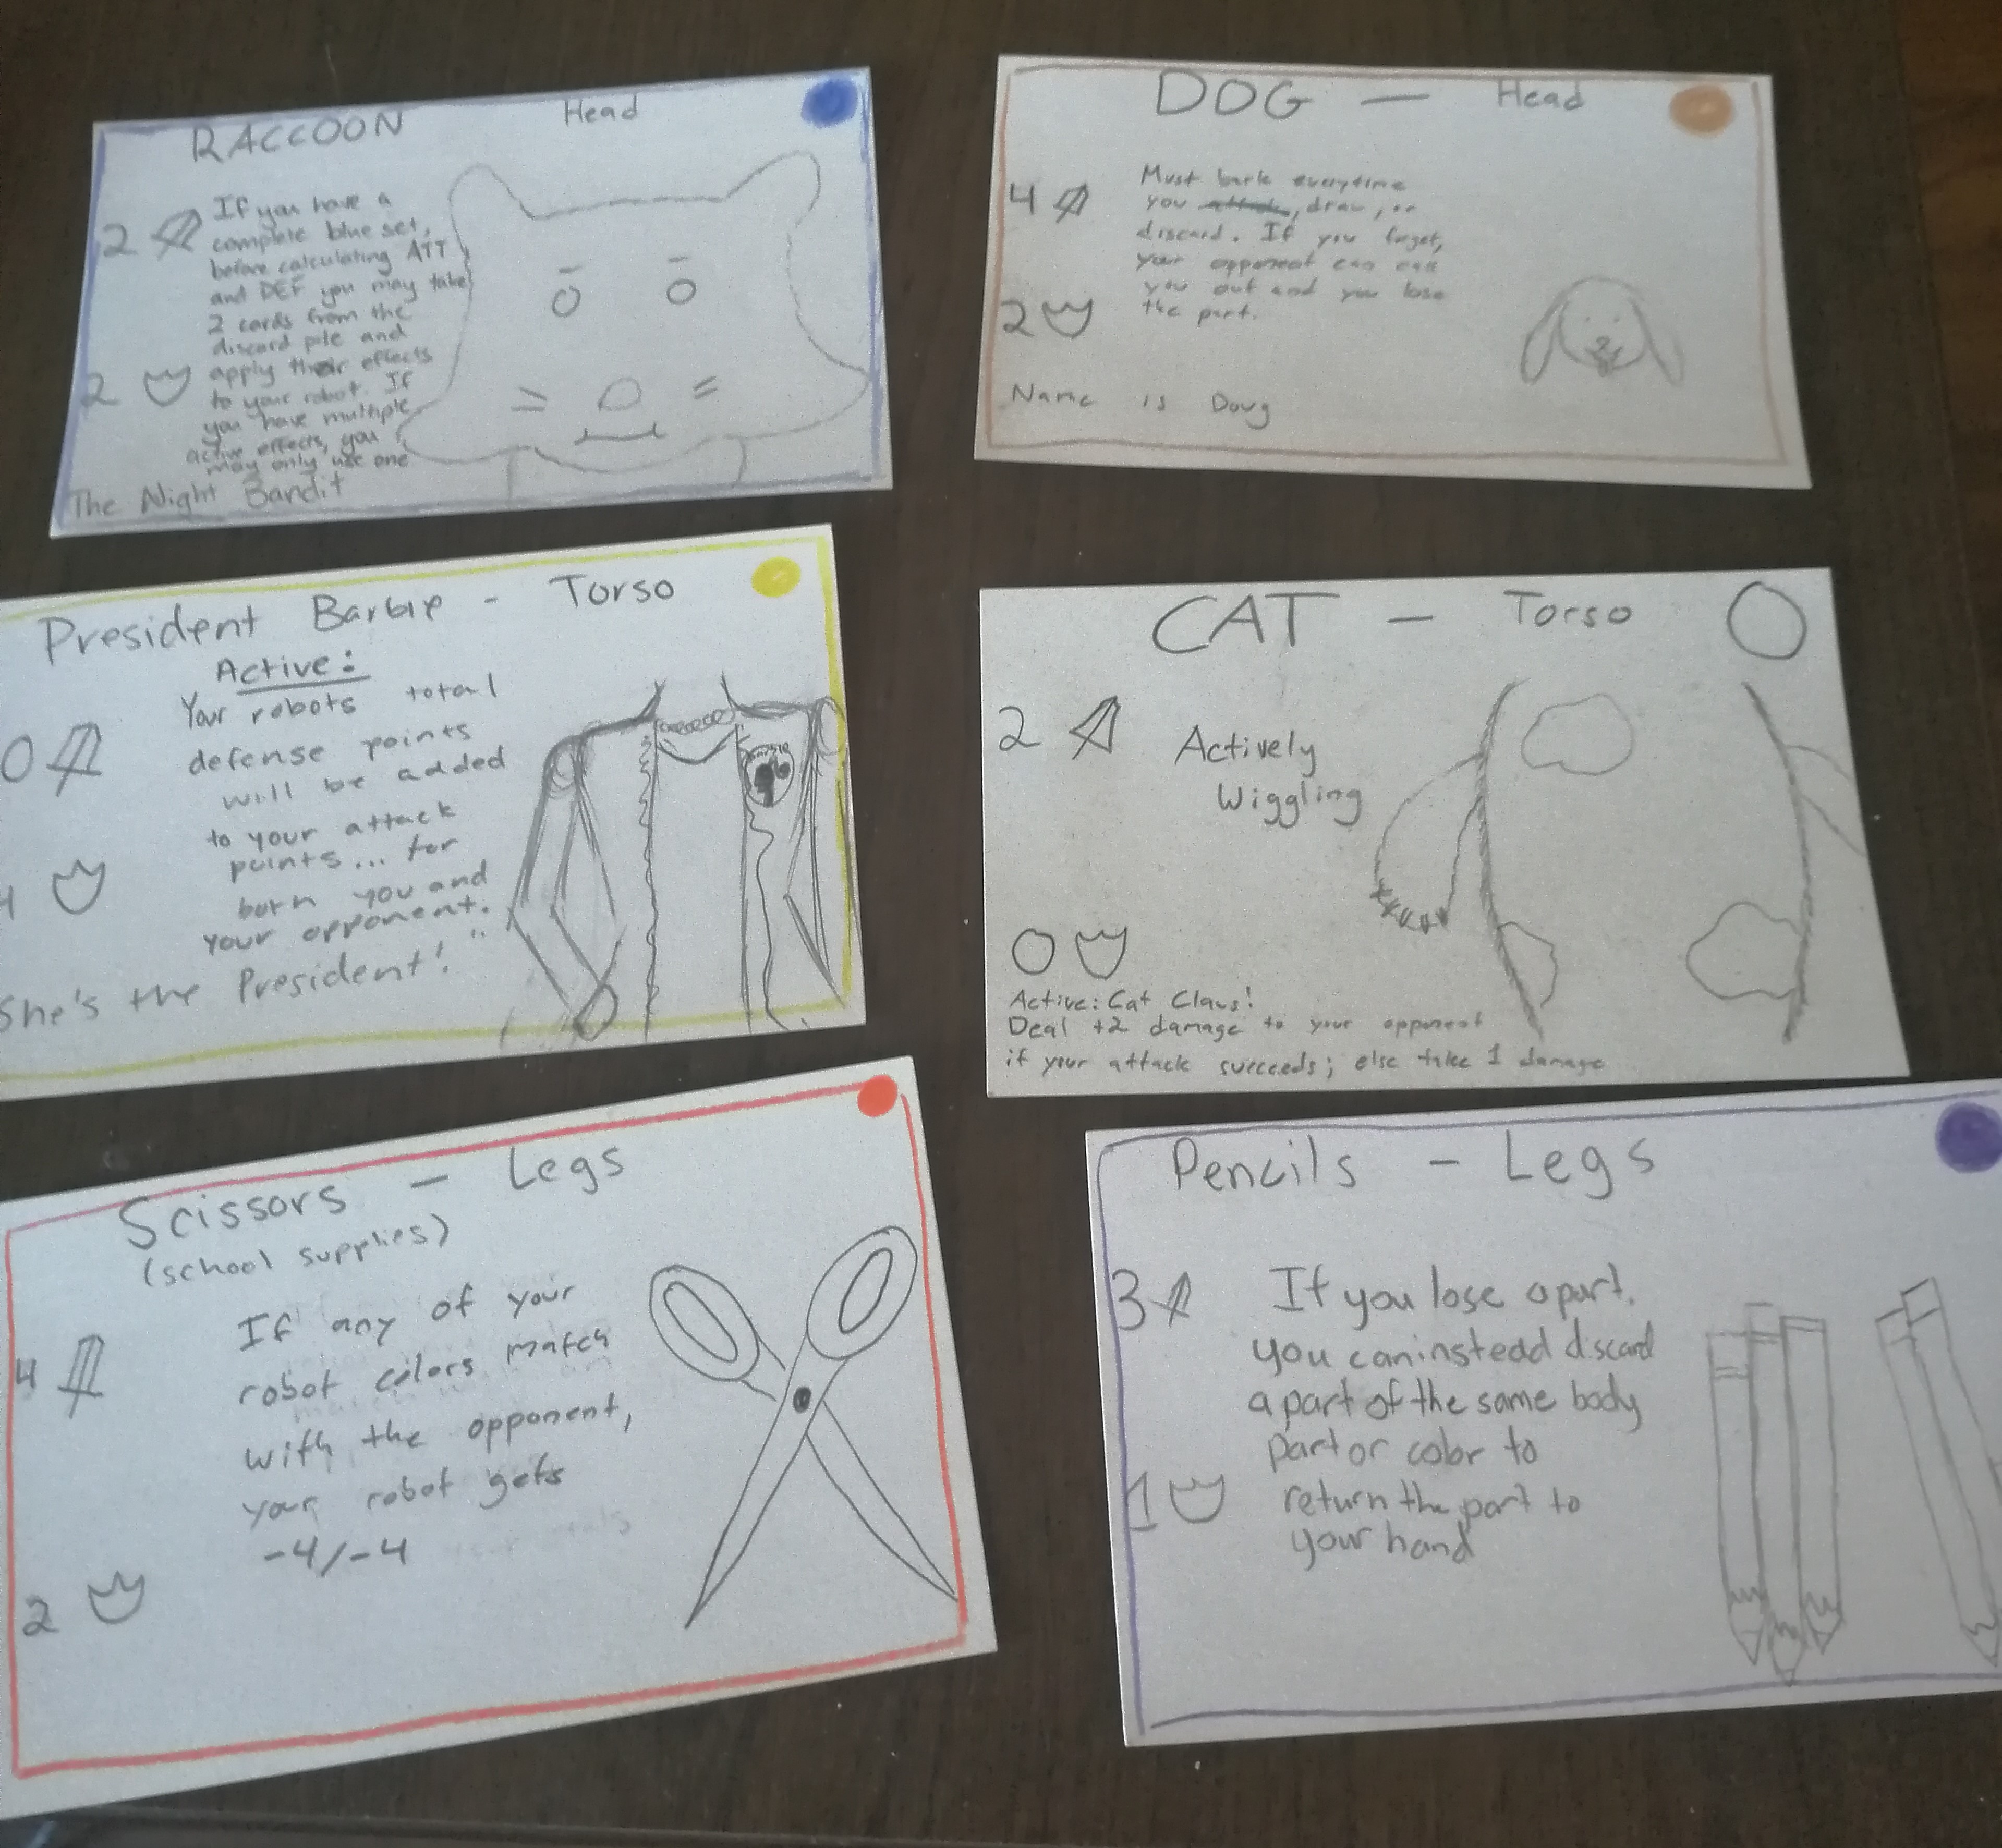 RACCOON Head
2
If you have a
complete blue set,
before calculating ATT
and DEF you may take
2 cards from the
discard pile and
apply their effects
to your robot. If
you have multiple
active effects, you
may only use one
2
The Night Bandit
DOG — Head
4
Must bark everytime
you , draw, or
discard. If you forget,
your opponent can call
you out and you lose
the part.
2
Name is Doug
President Barbie - Torso
Active:
Your robots total
defense points
will be added
to your attack
points... for
both you and
your opponent.
0
4
She's the President!"
CAT — Torso
2
Actively
Wiggling
0
Active: Cat Claws!
Deal +2 damage to your opponent
if your attack succeeds; else take 1 damage
Scissors — Legs
(school supplies)
4
If any of your
robot colors match
with the opponent,
your robot gets
-4/-4
2
Pencils - Legs
3
If you lose a part,
you can instead discard
a part of the same body
part or color to
return the part to
your hand
1